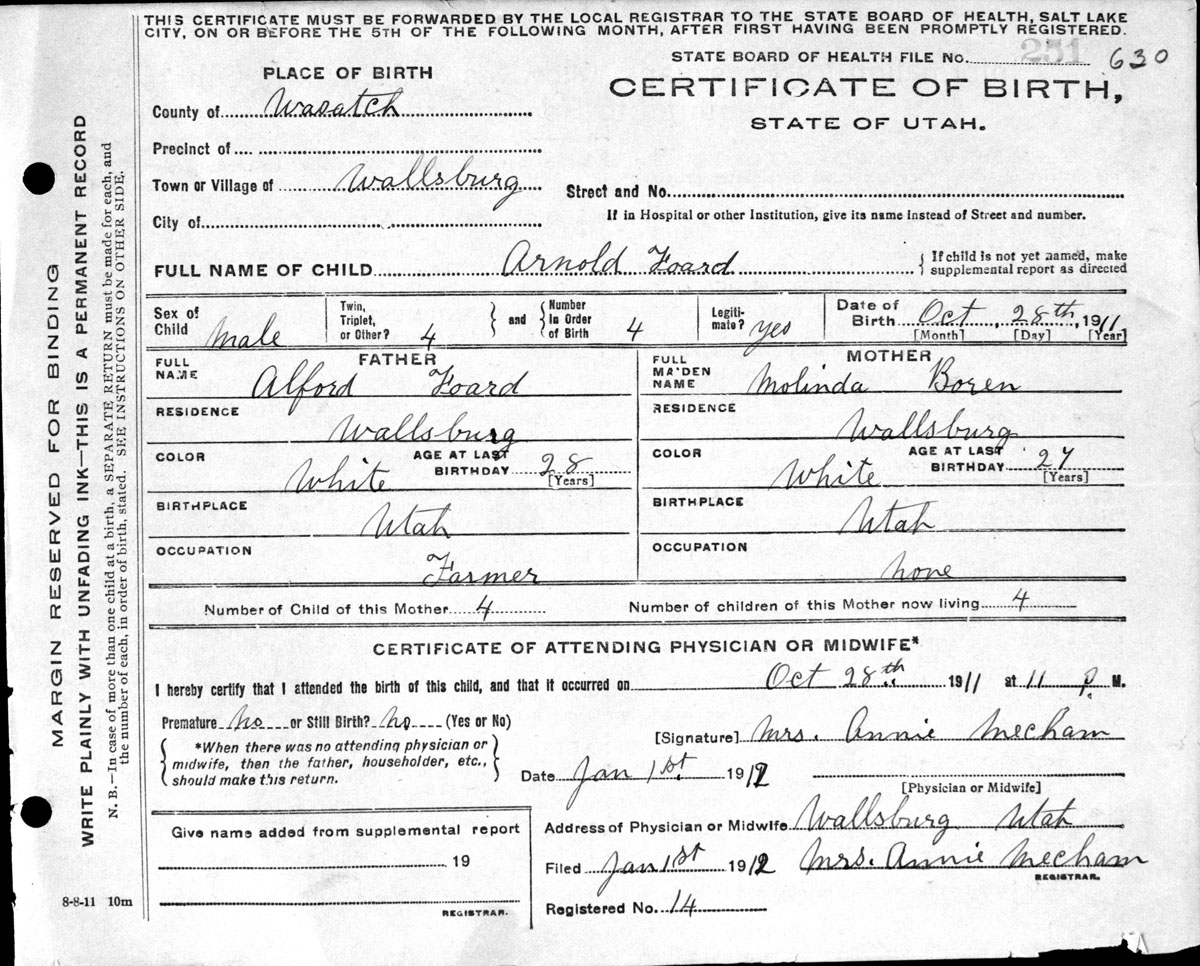 THIS CERTIFICATE MUST BE FORWARDED BY THE LOCAL REGISTRAR TO THE STATE BOARD OF HEALTH, SALT LAKE
CITY, ON OR BEFORE THE 5TH OF THE FOLLOWING MONTH, AFTER FIRST HAVING BEEN PROMPTLY REGISTERED.
STATE BOARD OF HEALTH FILE No. 251 630
PLACE OF BIRTH
CERTIFICATE OF BIRTH,
STATE OF UTAH.
County of Wasatch
Precinct of
Town or Village of Wallsburg
Street and No.
City of
If in Hospital or other Institution, give its name instead of Street and number.
FULL NAME OF CHILD Arnold Foard
If child is not yet named, make
supplemental report as directed
Sex of Child Male
Twin, Triplet, or Other? 4
and
Number In Order of Birth 4
Legiti-mate? yes
Date of Birth Oct, 28th, 1911
[Month] [Day] [Year]
FATHER
FULL NAME Alford Foard
RESIDENCE Wallsburg
COLOR White
AGE AT LAST BIRTHDAY 28
[Years]
BIRTHPLACE Utah
OCCUPATION Farmer
MOTHER
FULL MAIDEN NAME Molinda Boren
RESIDENCE Wallsburg
COLOR White
AGE AT LAST BIRTHDAY 27
[Years]
BIRTHPLACE Utah
OCCUPATION none
Number of Child of this Mother 4
Number of children of this Mother now living 4
CERTIFICATE OF ATTENDING PHYSICIAN OR MIDWIFE*
I hereby certify that I attended the birth of this child, and that it occurred on Oct 28th 1911 at 11 P. M.
Premature no or Still Birth? no (Yes or No)
*When there was no attending physician or
midwife, then the father, householder, etc.,
should make this return.
[Signature] Mrs. Annie Mecham
Date Jan 1st 1912
[Physician or Midwife]
Give name added from supplemental report
19
REGISTRAR.
Address of Physician or Midwife Wallsburg Utah
Filed Jan 1st 1912 Mrs. Annie Mecham
REGISTRAR.
Registered No. 14
8-8-11 10m
MARGIN RESERVED FOR BINDING
WRITE PLAINLY WITH UNFADING INK—THIS IS A PERMANENT RECORD
N. B.—In case of more than one child at a birth, a SEPARATE RETURN must be made for each, and
the number of each, in order of birth, stated. SEE INSTRUCTIONS ON OTHER SIDE.